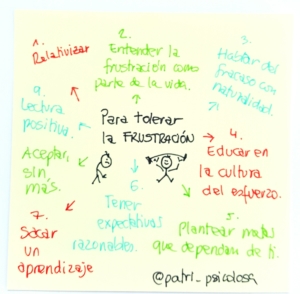 1.
Relativizar
2.
Entender la
frustración como
parte de la vida.
3.
Hablar del
fracaso con
naturalidad.
9.
Lectura
positiva.
Para tolerar
la FRUSTRACIÓN
4.
Educar en
la cultura
del esfuerzo.
Aceptar,
sin
más.
6.
Tener
expectativas
razonables.
5.
Plantear metas
que dependan de ti.
7.
Sacar
un
aprendizaje
@patri_psicologa